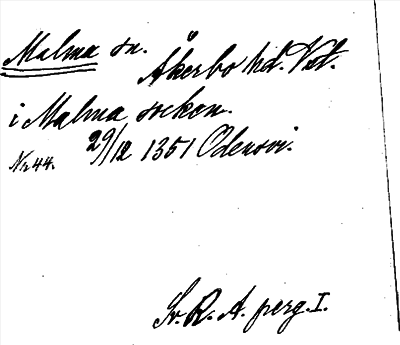 Malma sn.
Åkerbo hd. Vst.
i Malma socken.
Nr 44. 29/12 1351 Odensvi.
Sv. R. A. perg. I.